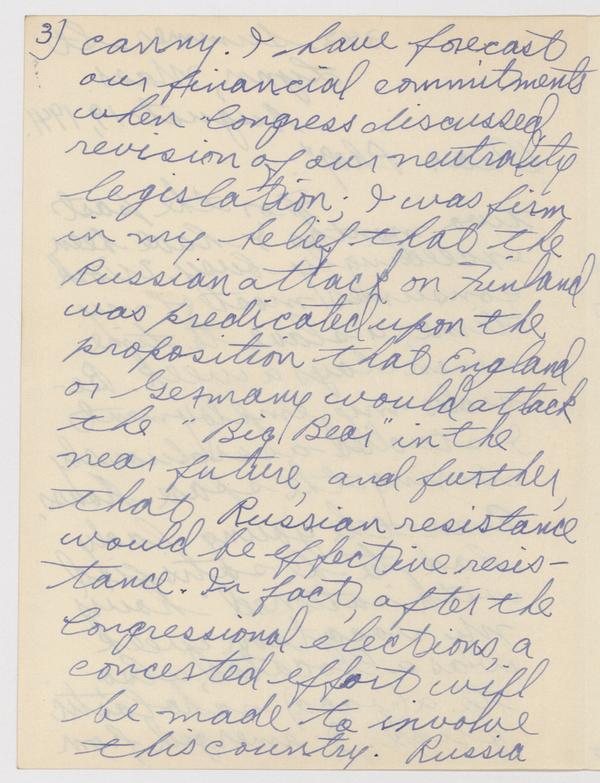 3) canny. I have forecast
our financial commitments
when Congress discussed
revision of our neutrality
legislation; I was firm
in my belief that the
Russian attack on Finland
was predicated upon the
proposition that England
or Germany would attack
the "Big Bear" in the
near future, and further,
that, Russian resistance
would be effective resis-
tance. In fact, after the
Congressional elections, a
concerted effort will
be made to involve
this country. Russia